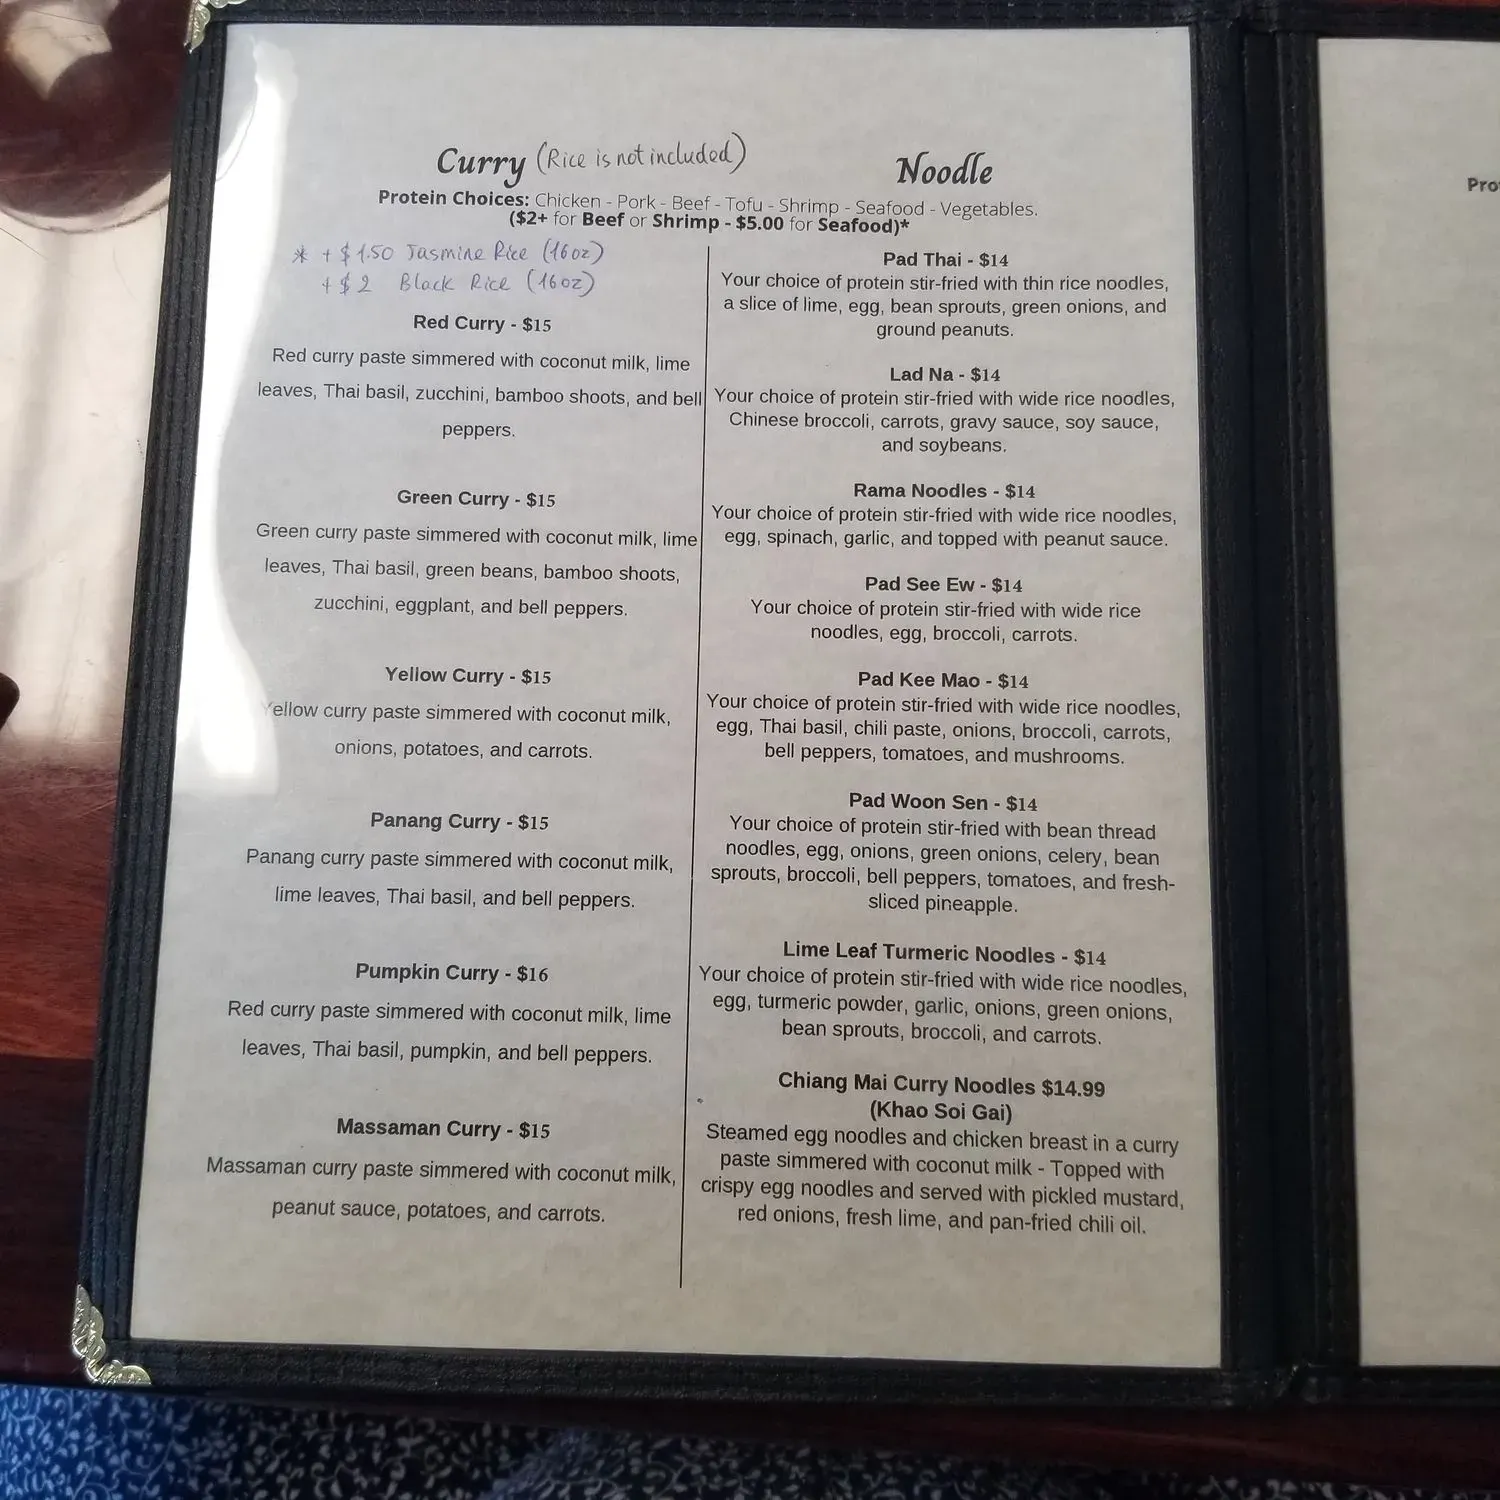 Curry (Rice is not included)
Noodle
Protein Choices: Chicken - Pork - Beef - Tofu - Shrimp - Seafood - Vegetables.
($2+ for Beef or Shrimp - $5.00 for Seafood)*
* + $1.50 Jasmine Rice (16oz)
+ $2 Black Rice (16oz)
Red Curry - $15
Red curry paste simmered with coconut milk, lime
leaves, Thai basil, zucchini, bamboo shoots, and bell
peppers.
Green Curry - $15
Green curry paste simmered with coconut milk, lime
leaves, Thai basil, green beans, bamboo shoots,
zucchini, eggplant, and bell peppers.
Yellow Curry - $15
Yellow curry paste simmered with coconut milk,
onions, potatoes, and carrots.
Panang Curry - $15
Panang curry paste simmered with coconut milk,
lime leaves, Thai basil, and bell peppers.
Pumpkin Curry - $16
Red curry paste simmered with coconut milk, lime
leaves, Thai basil, pumpkin, and bell peppers.
Massaman Curry - $15
Massaman curry paste simmered with coconut milk,
peanut sauce, potatoes, and carrots.
Pad Thai - $14
Your choice of protein stir-fried with thin rice noodles,
a slice of lime, egg, bean sprouts, green onions, and
ground peanuts.
Lad Na - $14
Your choice of protein stir-fried with wide rice noodles,
Chinese broccoli, carrots, gravy sauce, soy sauce,
and soybeans.
Rama Noodles - $14
Your choice of protein stir-fried with wide rice noodles,
egg, spinach, garlic, and topped with peanut sauce.
Pad See Ew - $14
Your choice of protein stir-fried with wide rice
noodles, egg, broccoli, carrots.
Pad Kee Mao - $14
Your choice of protein stir-fried with wide rice noodles,
egg, Thai basil, chili paste, onions, broccoli, carrots,
bell peppers, tomatoes, and mushrooms.
Pad Woon Sen - $14
Your choice of protein stir-fried with bean thread
noodles, egg, onions, green onions, celery, bean
sprouts, broccoli, bell peppers, tomatoes, and fresh-
sliced pineapple.
Lime Leaf Turmeric Noodles - $14
Your choice of protein stir-fried with wide rice noodles,
egg, turmeric powder, garlic, onions, green onions,
bean sprouts, broccoli, and carrots.
Chiang Mai Curry Noodles $14.99
(Khao Soi Gai)
Steamed egg noodles and chicken breast in a curry
paste simmered with coconut milk - Topped with
crispy egg noodles and served with pickled mustard,
red onions, fresh lime, and pan-fried chili oil.